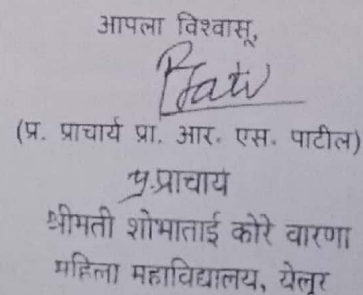 आपला विश्वासू,
(प्र. प्राचार्य प्रा. आर. एस. पाटील)
प्र.प्राचार्य
श्रीमती शोभाताई कोरे वारणा
महिला महाविद्यालय, येलूर